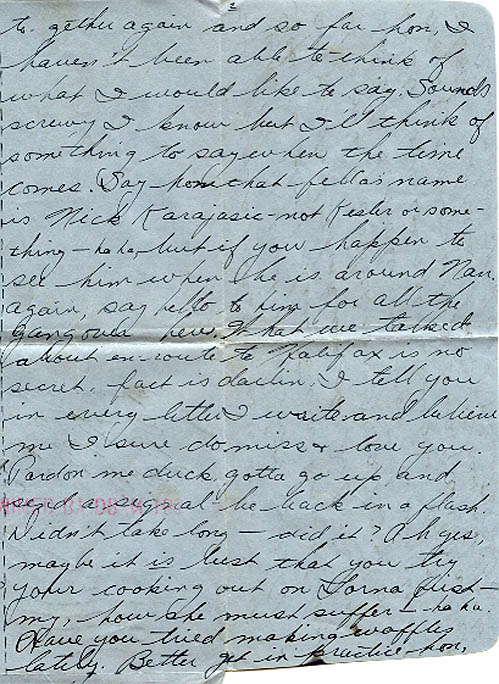 2
to. gether again and so far hon, I
haven't been able to think of
what I would like to say. Sounds
screwy I know but I'll think of
something to say when the time
comes. Say hon that fella's name
is Nick Karajasic - not Kesler or some-
thing - ha ha, but if you happen to
see him when he is around Nan
again, say hello to him for all the
gang over here. What we talked
about en-route to Halifax is no
secret, fact is darlin, I tell you
in every letter I write and believe
me I sure do miss & love you.
Pardon me duck gotta go up and
send a signal - be back in a flash.
Didn't take long - did it? Ah yes
maybe it is best that you try
your cooking out on Lorna first -
my, how she must suffer - ha ha.
Have you tried making waffles
lately. Better get in practice hon,